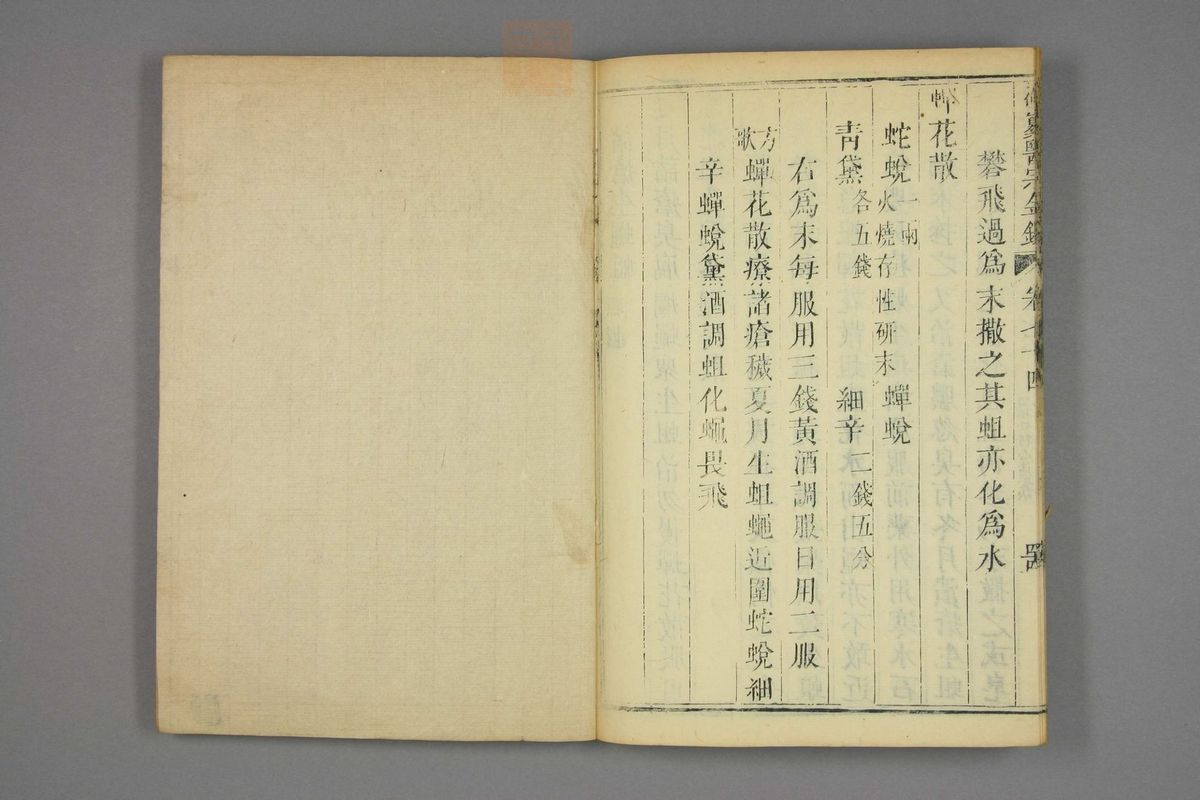 御纂醫宗金鑑 卷七十四
礬飛過爲末撒之其蛆亦化爲水
蟬花散
蛇蛻一兩火燒存性研末 蟬蛻
青黛各五錢 細辛二錢五分
右爲末每服用三錢黃酒調服日用二服
方歌 蟬花散療諸瘡穢夏月生蛆蠅近圍蛇蛻細
辛蟬蛻黛酒調蛆化蠅畏飛